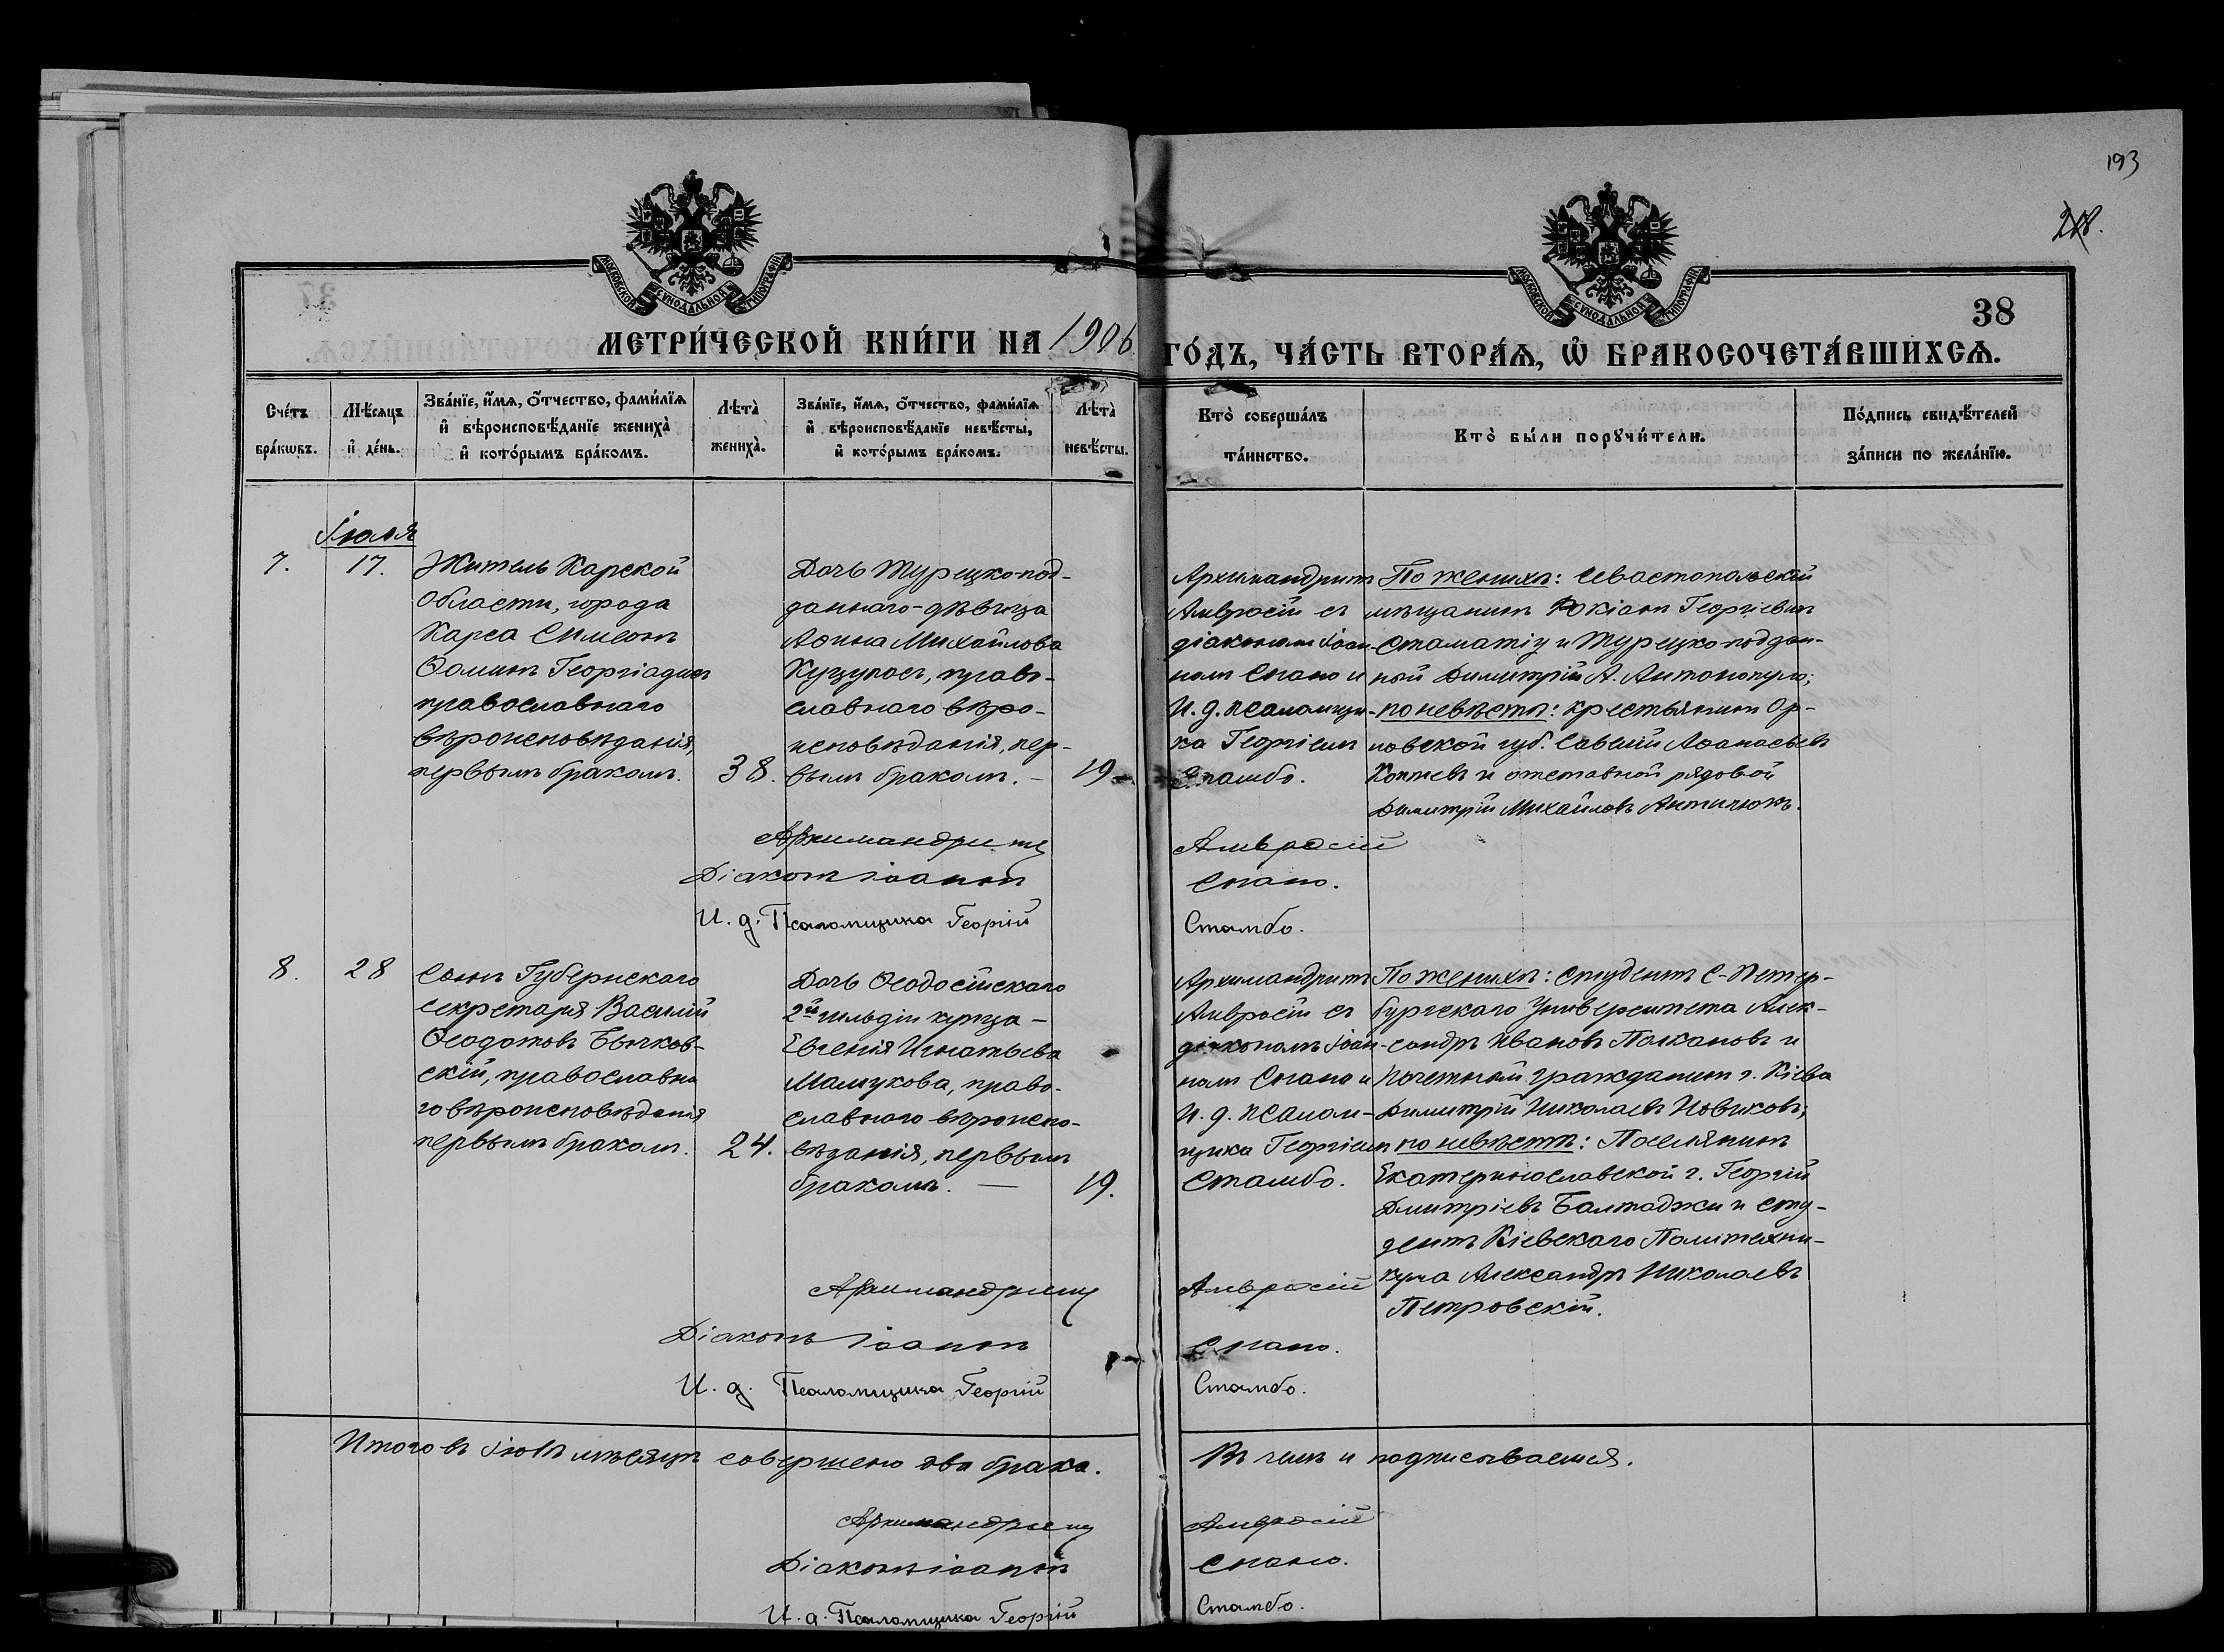 193
218.
МОСКОВСКОЙ СѴНОДАЛЬНОЙ ТИПОГРАФІИ
МОСКОВСКОЙ СѴНОДАЛЬНОЙ ТИПОГРАФІИ
38
МЕТРИ́ЧЕСКОЙ КНИ́ГИ НА 1906 ГО́ДЪ, ЧА́СТЬ ВТОРА́Ѧ, Ѡ БРАКОСОЧЕТА́ВШИХСѦ.
Сче́тъ
бра́кѡвъ.
Мѣ́сяцъ
и де́нь.
Зва́нїе, и́мѧ, о́тчество, фами́лїѧ
и вѣроисповѣ́данїе жениха̀
и кото́рымъ бра́комъ.
Лѣта̀
жениха̀.
Зва́нїе, и́мѧ, о́тчество, фами́лїѧ
и вѣроисповѣ́данїе невѣ́сты,
и кото́рымъ бра́комъ.
Лѣта̀
невѣ́сты.
Кто̀ соверша́лъ
та́инство.
Кто̀ бы́ли порꙋчи́тели.
По́дпись свидѣ́телей
за́писи по жела́нїю.
Іюля
7.
17.
Житель Карской
Области, города
Карса Симеонъ
Ѳоминъ Георгіадисъ
православнаго
вѣроисповѣданія,
первымъ бракомъ.
38.
Дочь Турецко-под-
даннаго-дѣвица
Аѳина Михайлова
право-
славнаго вѣро-
исповѣданія, пер-
вымъ бракомъ. —
19
Архимандритъ
Амвросій съ
діакономъ Іоан-
номъ Спано и
И. д. псаломщи-
ка Георгіемъ
Стамбо.
По женихѣ: Севастопольскій
мѣщанинъ Георгіевичъ
Стаматіу и Турецко-поддан-
ный Димитрій А. Антонопуло;
по невѣстѣ: крестьянинъ Ор-
ловской губ. Савелій Аѳанасьевъ
и отставной рядовой
Димитрій Михайловъ
Архимандритъ Амвросій
Діаконъ Іоаннъ Спано.
И. д. Псаломщика Георгій Стамбо.
8.
28
Сынъ Губернскаго
секретаря Василій
Ѳеодотовъ Бычков-
скій, православна
го вѣроисповѣданія
первымъ бракомъ.
24.
Дочь Ѳеодосійскаго
2й гильдіи купца —
Евгенія Игнатьева
Мамукова, право-
славнаго вѣроиспо-
вѣданія, первымъ
бракомъ. —
19.
Архимандритъ
Амвросій съ
діакономъ Іоан-
номъ Спано и
И. д. псалом-
щика Георгіемъ
Стамбо.
По женихѣ: студентъ С-Петер-
бургскаго Университета Алек-
сандръ Ивановъ Полкановъ и
почетный гражданинъ г. Кіева
Димитрій Николаевъ Новиковъ;
по невѣстѣ: Поселянинъ
Екатеринославской г. Георгій
Дмитріевъ Балтаджи и сту-
дентъ Кіевскаго Политехни-
кума Александръ Николаевъ
Петровскій.
Архимандритъ Амвросій
Діаконъ Іоаннъ Спано.
И. д. Псаломщика Георгій Стамбо.
Итого въ Іюлѣ мѣсяцѣ совершено два брака. Въ чемъ и подписываемся.
Архимандритъ Амвросій
Діаконъ Іоаннъ Спано.
И. д. Псаломщика Георгій Стамбо.